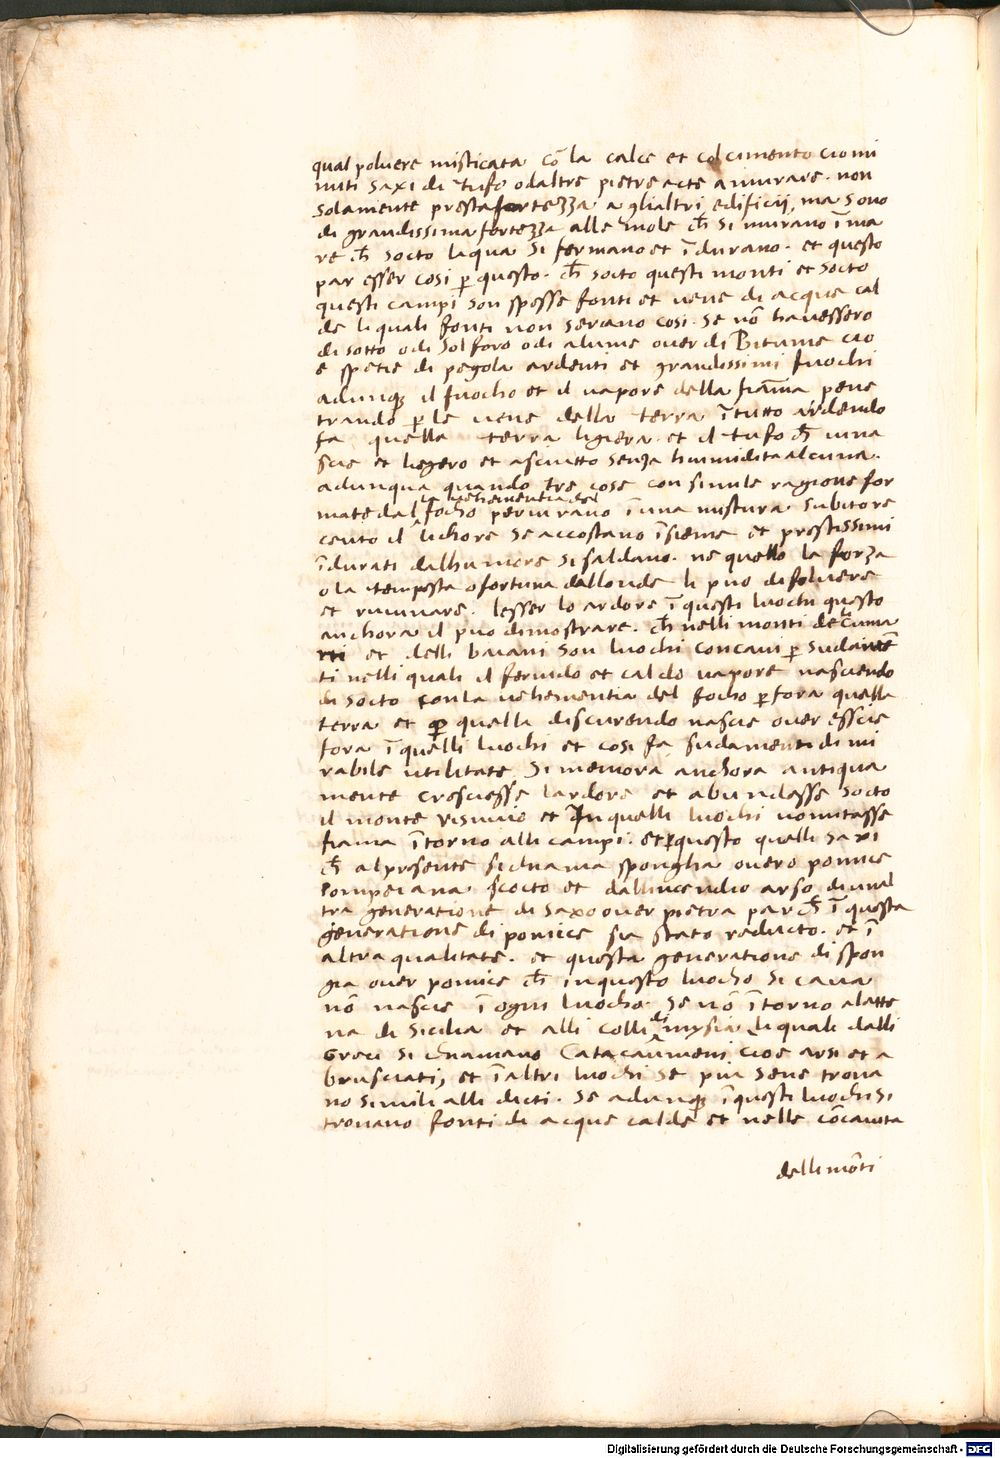 qual poluere misticata cō la calce et col cimento cio mi
nuti saxi di tufo o daltre pietre acte a murare. non
solamente presta fortezza a glialtri edificii, ma sono
di grandissima fortezza alle mole ch̄ si murano ī ma
re ch̄ socto laqua si fermano et īdurano. et questo
par esser cosi ꝑ questo. ch̄ socto questi monti et socto
questi campi son spesse fonti et uene di acque cal
de li quali fonti non seriano cosi. se nō hauessero
di sotto o di solforo o di alume ouer di Bitume cio
e spetie di pegola ardenti et grandissimi fuochi
adunqȝ il fuocho et il uapore della fiāma pene
trando ꝑ le uene della terra ī tutto ardendo
fa quella terra ligiera. et il tufo ch̄ iui na
scie et legero et asciutto senza humidita alcuna.
adunqua quando tre cose con simile ragione for
la uehementia del
mate dal focho peruirano ī una mistura subito re
ceuto il lichore se accostano īsieme et prestissimi
īdurati dalhumore si saldano. ne quello la forza
o la tempesta o fortuna dallonde li puo disoluere
et ruuinare. lesser lo ardore ī questi luochi questo
anchora il puo dimostrare. ch̄ nelli monti de cuma
ni et delli baiani son luochi concaui ꝑ sudamē
ti nelli quali il feruido et caldo uapore nasciendo
di socto con la uehementia del focho ꝑfora quella
terra et ꝑ quella discurendo nascie ouer esscie
fora ī quelli luochi et cosi fa sudamenti di mi
rabile utilitate. Si memora anchora antiqua
mente cresciesse lardore et abundasse socto
il monte uesuuio et In quelli luochi uomitasse
fiama ītorno alli campi. et ꝑ questo quelli saxi
ch̄ al presente si chiama spongha ouero pomice
Pompeiana scocto et dallincendio arso di unal
tra generatione di saxo ouer pietra par ch̄ ī questa
generatione di pomice sia stato reducto. et ī
altra qualitate. et questa generatione di spon
gia ouer pomice ch̄ in questo luocho si caua
nō nascie ī ogni luocho. se nō ītorno alatte
na di Sicilia et alli colli di mysia li quali dalli
Greci si chiamano Catacaūmeni cioe arsi et a
brusciati, et ī altri luochi se piu sene troua
no simili alli dicti. Se adunqȝ ī questi luochi si
trouano fonti di acque calde et nelle cōcauita
delli mōti
Digitalisierung gefördert durch die Deutsche Forschungsgemeinschaft - DFG